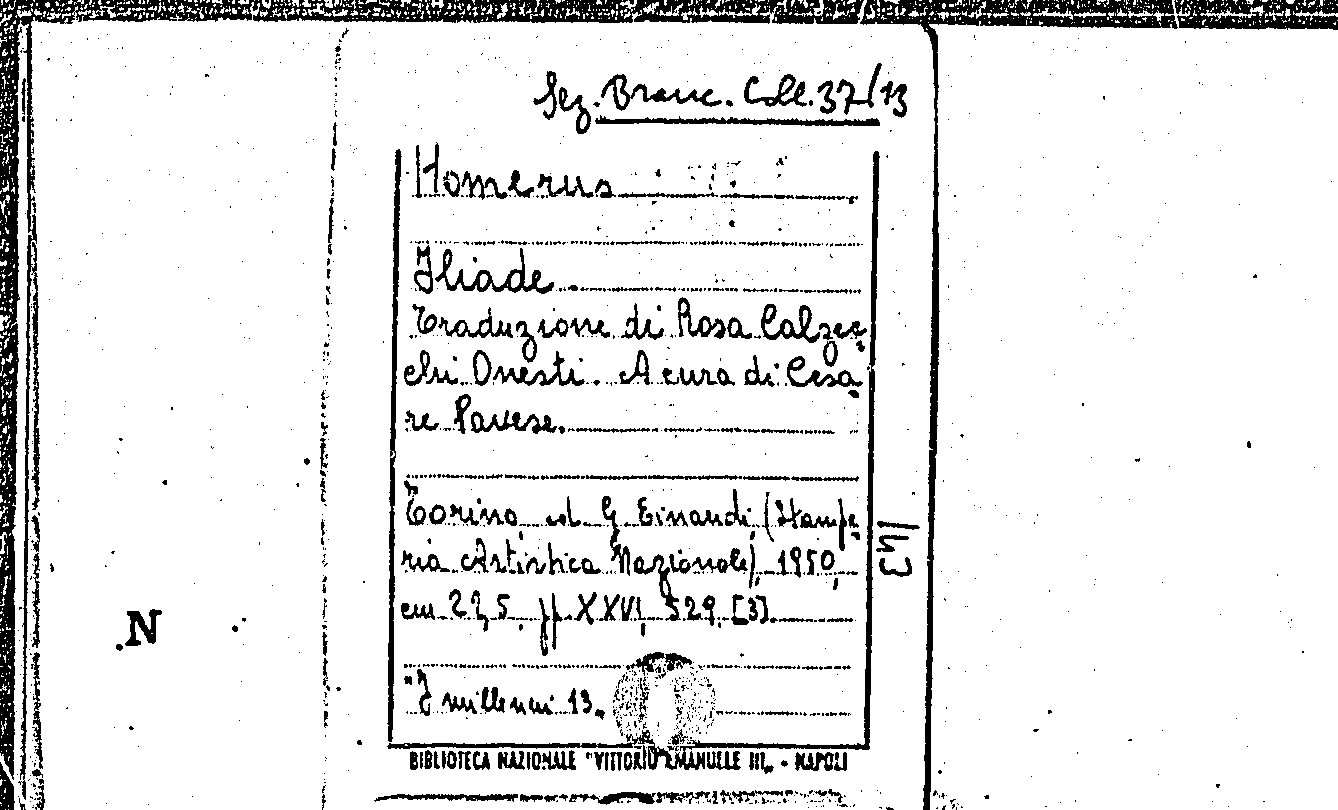 Sez. Branc. Coll. 37/13
Homerus
Iliade.
Traduzione di Rosa Calzec-
chi Onesti. A cura di Cesa-
re Pavese.
Torino, ed. G. Einaudi, (Stampe-
ria Artistica Nazionale), 1950,
cm. 21,5, pp. XXVI, 529, [3].
"I millenni 13„
BIBLIOTECA NAZIONALE "VITTORIO EMANUELE III„ - NAPOLI
N